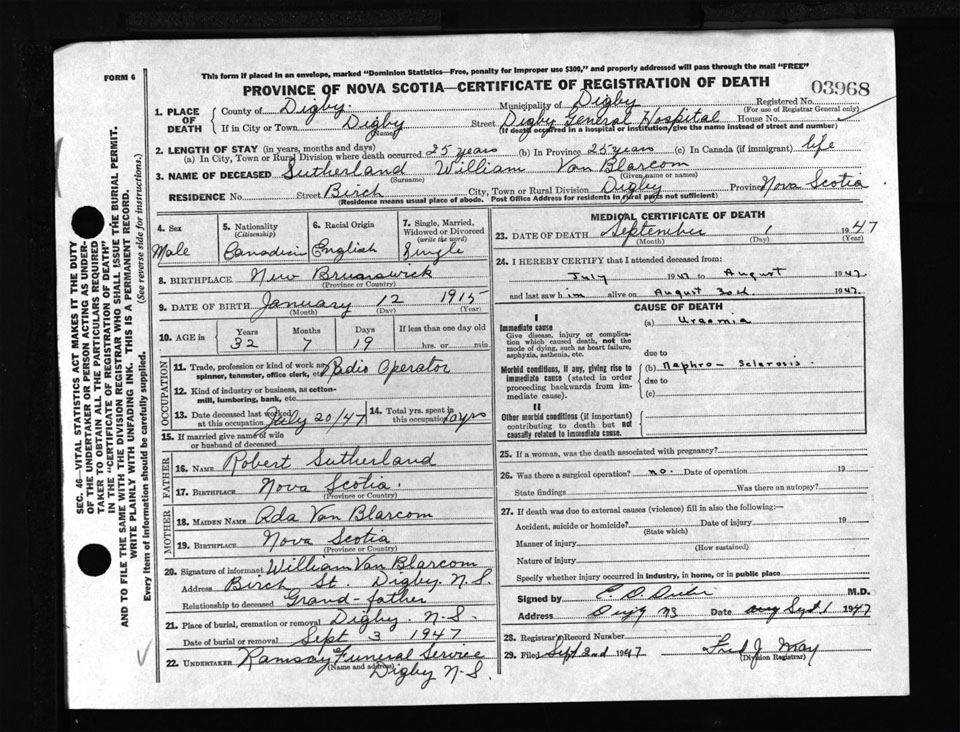 FORM 6
This form if placed in an envelope, marked "Dominion Statistics—Free, penalty for improper use $300," and properly addressed will pass through the mail "FREE"
PROVINCE OF NOVA SCOTIA—CERTIFICATE OF REGISTRATION OF DEATH
03968
SEC. 46—VITAL STATISTICS ACT MAKES IT THE DUTY
OF THE UNDERTAKER OR PERSON ACTING AS UNDER-
TAKER TO OBTAIN ALL THE PARTICULARS REQUIRED
IN THE "CERTIFICATE OF REGISTRATION OF DEATH"
AND TO FILE THE SAME WITH THE DIVISION REGISTRAR WHO SHALL ISSUE THE BURIAL PERMIT.
WRITE PLAINLY WITH UNFADING INK. THIS IS A PERMANENT RECORD.
Every item of information should be carefully supplied. (See reverse side for instructions.)
1. PLACE OF DEATH
County of Digby. Municipality of Digby Registered No.
(For use of Registrar General only)
If in City or Town Digby Street Digby General Hospital House No.
(Name) (If death occurred in a hospital or institution, give the name instead of street and number)
2. LENGTH OF STAY (in years, months and days)
(a) In City, Town or Rural Division where death occurred 25 years (b) In Province 25 years (c) In Canada (if immigrant) life
3. NAME OF DECEASED Sutherland William Van Blarcom
(Surname) (Given name or names)
RESIDENCE No. Street Birch City, Town or Rural Division Digby Province Nova Scotia
(Residence means usual place of abode. Post Office Address for residents in rural parts not sufficient)
4. Sex Male
5. Nationality (Citizenship) Canadian
6. Racial Origin English
7. Single, Married, Widowed or Divorced (write the word) Single
8. BIRTHPLACE New Brunswick
(Province or Country)
9. DATE OF BIRTH January 12 1915
(Month) (Day) (Year)
10. AGE in Years Months Days If less than one day old
32 7 19 hrs. or min.
OCCUPATION
11. Trade, profession or kind of work as spinner, teamster, office clerk, etc. Radio Operator
12. Kind of industry or business, as cotton-mill, lumbering, bank, etc.
13. Date deceased last worked at this occupation July 20/47
14. Total yrs. spent in this occupation yrs
15. If married give name of wife or husband of deceased
FATHER
16. NAME Robert Sutherland
17. BIRTHPLACE Nova Scotia.
(Province or Country)
MOTHER
18. MAIDEN NAME Ada Van Blarcom
19. BIRTHPLACE Nova Scotia
(Province or Country)
20. Signature of informant William Van Blarcom
Address Birch St. Digby. N.S.
Relationship to deceased Grand-father
21. Place of burial, cremation or removal Digby. N.S.
Date of burial or removal Sept 3 1947
22. UNDERTAKER Ramsay Funeral Service
(Name and address) Digby N-S.
MEDICAL CERTIFICATE OF DEATH
23. DATE OF DEATH September 1 1947
(Month) (Day) (Year)
24. I HEREBY CERTIFY that I attended deceased from:
July 1947 to August 1947
and last saw him alive on August 30th 1947.
CAUSE OF DEATH
I
Immediate cause (a) Uraemia
Give disease, injury or complication which caused death, not the mode of dying, such as heart failure, asphyxia, asthenia, etc.
due to
Morbid conditions, if any, giving rise to immediate cause (stated in order proceeding backwards from immediate cause). (b) Nephro-Sclerosis.
due to
(c)
II
Other morbid conditions (if important) contributing to death but not causally related to immediate cause.
25. If a woman, was the death associated with pregnancy?
26. Was there a surgical operation? no. Date of operation 19
State findings Was there an autopsy?
27. If death was due to external causes (violence) fill in also the following:—
Accident, suicide or homicide? Date of injury 19
(State which)
Manner of injury
(How sustained)
Nature of injury
Specify whether injury occurred in industry, in home, or in public place
Signed by M.D.
Address Digby NS Date Sept 1 1947
28. Registrar's Record Number
29. Filed Sept 2nd 1947 Fred J. May
(Division Registrar)